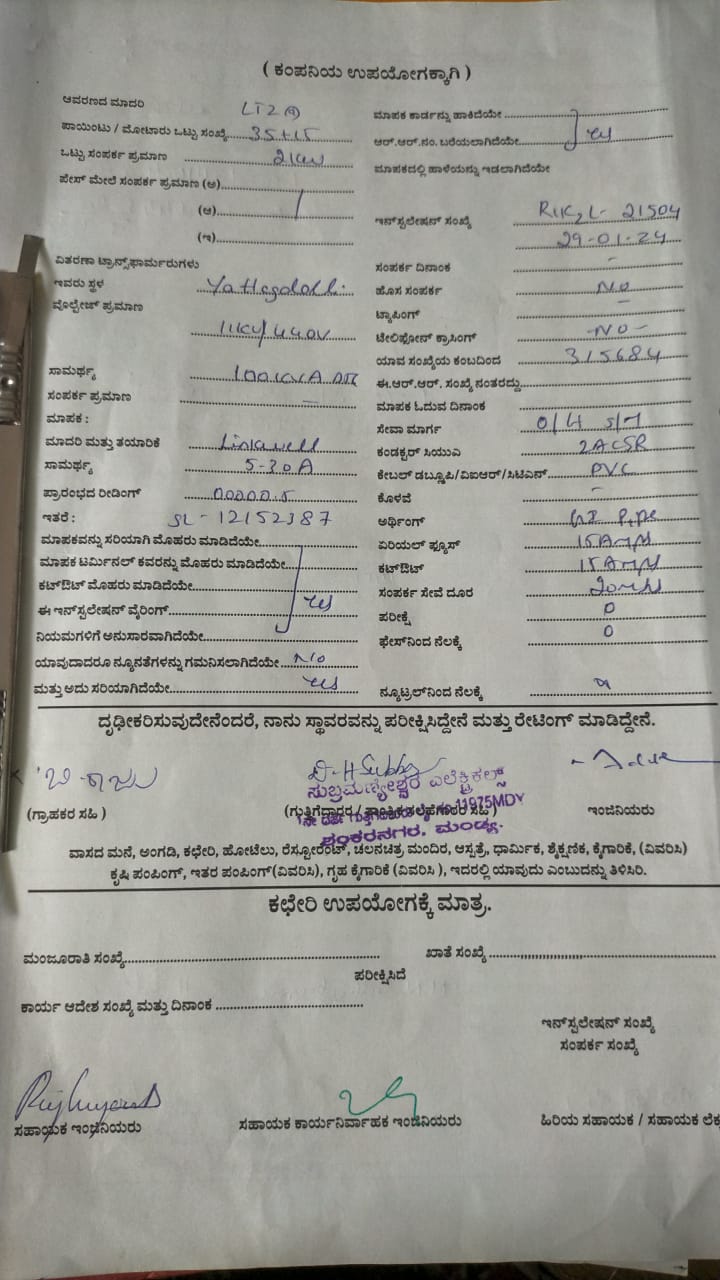 ( ಕಂಪನಿಯ ಉಪಯೋಗಕ್ಕಾಗಿ )
ಆವರಣದ ಮಾದರಿ LT2
ಪಾಯಿಂಟು / ಮೋಟಾರು ಒಟ್ಟು ಸಂಖ್ಯೆ 35+15
ಒಟ್ಟು ಸಂಪರ್ಕ ಪ್ರಮಾಣ 2kw
ಪೇಸ್ ಮೇಲೆ ಸಂಪರ್ಕ ಪ್ರಮಾಣ (ಅ)
(ಆ)
(ಇ)
ವಿತರಣಾ ಟ್ರಾನ್ಸ್‌ಫಾರ್ಮರುಗಳು
ಇವರು ಸ್ಥಳ
ವೋಲ್ಟೇಜ್ ಪ್ರಮಾಣ
11KV/440V
ಸಾಮರ್ಥ್ಯ 100KVA
ಸಂಪರ್ಕ ಪ್ರಮಾಣ —
ಮಾಪಕ :
ಮಾದರಿ ಮತ್ತು ತಯಾರಿಕೆ Linkwell
ಸಾಮರ್ಥ್ಯ 5-30A
ಪ್ರಾರಂಭದ ರೀಡಿಂಗ್ 00000.5
ಇತರೆ : SL-12152387
ಮಾಪಕವನ್ನು ಸರಿಯಾಗಿ ಮೊಹರು ಮಾಡಿದೆಯೇ
ಮಾಪಕ ಟರ್ಮಿನಲ್ ಕವರನ್ನು ಮೊಹರು ಮಾಡಿದೆಯೇ
ಕಟ್‌ಔಟ್ ಮೊಹರು ಮಾಡಿದೆಯೇ
ಈ ಇನ್‌ಸ್ಪಲೇಷನ್ ವೈರಿಂಗ್ yes
ನಿಯಮಗಳಿಗೆ ಅನುಸಾರವಾಗಿದೆಯೇ
ಯಾವುದಾದರೂ ನ್ಯೂನತೆಗಳನ್ನು ಗಮನಿಸಲಾಗಿದೆಯೇ No
ಮತ್ತು ಅದು ಸರಿಯಾಗಿದೆಯೇ yes
ಮಾಪಕ ಕಾರ್ಡನ್ನು ಹಾಕಿದೆಯೇ
ಆರ್.ಆರ್.ನಂ. ಬರೆಯಲಾಗಿದೆಯೇ yes
ಮಾಪಕದಲ್ಲಿ ಹಾಳೆಯನ್ನು ಇಡಲಾಗಿದೆಯೇ
ಇನ್‌ಸ್ಪಲೇಷನ್ ಸಂಖ್ಯೆ RUK2L-21504
29-01-24
ಸಂಪರ್ಕ ದಿನಾಂಕ -
ಹೊಸ ಸಂಪರ್ಕ No
ಟ್ಯಾಪಿಂಗ್ —
ಟೇಲಿಫೋನ್ ಕ್ರಾಸಿಂಗ್ -NO-
ಯಾವ ಸಂಖ್ಯೆಯ ಕಂಬದಿಂದ 315684
ಈ.ಆರ್.ಆರ್. ಸಂಖ್ಯೆ ನಂತರದ್ದು
ಮಾಪಕ ಓದುವ ದಿನಾಂಕ
ಸೇವಾ ಮಾರ್ಗ O/H S/M
ಕಂಡಕ್ಟರ್ ಸಿಯುಎ 2ACSR
ಕೇಬಲ್ ಡಬ್ಲೂಪಿ/ವಿಐಆರ್/ಸಿಟಿಎನ್ PVC
ಕೊಳವೆ -
ಅರ್ಥಿಂಗ್ GI Pipe
ಏರಿಯಲ್ ಫ್ಯೂಸ್ 15Amps
ಕಟ್‌ಔಟ್ 15Amps
ಸಂಪರ್ಕ ಸೇವೆ ದೂರ 20mts
ಪರೀಕ್ಷೆ 0
ಫೇಸ್‌ನಿಂದ ನೆಲಕ್ಕೆ 0
ನ್ಯೂಟ್ರಲ್‌ನಿಂದ ನೆಲಕ್ಕೆ
ದೃಢೀಕರಿಸುವುದೇನೆಂದರೆ, ನಾನು ಸ್ಥಾವರವನ್ನು ಪರೀಕ್ಷಿಸಿದ್ದೇನೆ ಮತ್ತು ರೇಟಿಂಗ್ ಮಾಡಿದ್ದೇನೆ.
ಸುಬ್ರಮಣ್ಯೇಶ್ವರ ಎಲೆಕ್ಟ್ರಿಕಲ್ಸ್
11975MDY
ಶಂಕರನಗರ, ಮಂಡ್ಯ.
(ಗ್ರಾಹಕರ ಸಹಿ) (ಗುತ್ತಿಗೆದಾರರ / ಸಹಿ ) ಇಂಜಿನಿಯರು
ವಾಸದ ಮನೆ, ಅಂಗಡಿ, ಕಛೇರಿ, ಹೋಟೆಲು, ರೆಸ್ಟೋರೆಂಟ್, ಚಲನಚಿತ್ರ ಮಂದಿರ, ಆಸ್ಪತ್ರೆ, ಧಾರ್ಮಿಕ, ಶೈಕ್ಷಣಿಕ, ಕೈಗಾರಿಕೆ, (ವಿವರಿಸಿ)
ಕೃಷಿ ಪಂಪಿಂಗ್, ಇತರ ಪಂಪಿಂಗ್ (ವಿವರಿಸಿ), ಗೃಹ ಕೈಗಾರಿಕೆ (ವಿವರಿಸಿ ), ಇದರಲ್ಲಿ ಯಾವುದು ಎಂಬುದನ್ನು ತಿಳಿಸಿರಿ.
ಕಛೇರಿ ಉಪಯೋಗಕ್ಕೆ ಮಾತ್ರ.
ಮಂಜೂರಾತಿ ಸಂಖ್ಯೆ ಖಾತೆ ಸಂಖ್ಯೆ
ಪರೀಕ್ಷಿಸಿದೆ
ಕಾರ್ಯ ಆದೇಶ ಸಂಖ್ಯೆ ಮತ್ತು ದಿನಾಂಕ
ಇನ್‌ಸ್ಪಲೇಷನ್ ಸಂಖ್ಯೆ
ಸಂಪರ್ಕ ಸಂಖ್ಯೆ
ಸಹಾಯಕ ಇಂಜಿನಿಯರು ಸಹಾಯಕ ಕಾರ್ಯನಿರ್ವಾಹಕ ಇಂಜಿನಿಯರು ಹಿರಿಯ ಸಹಾಯಕ / ಸಹಾಯಕ ಲೆಕ್ಕ